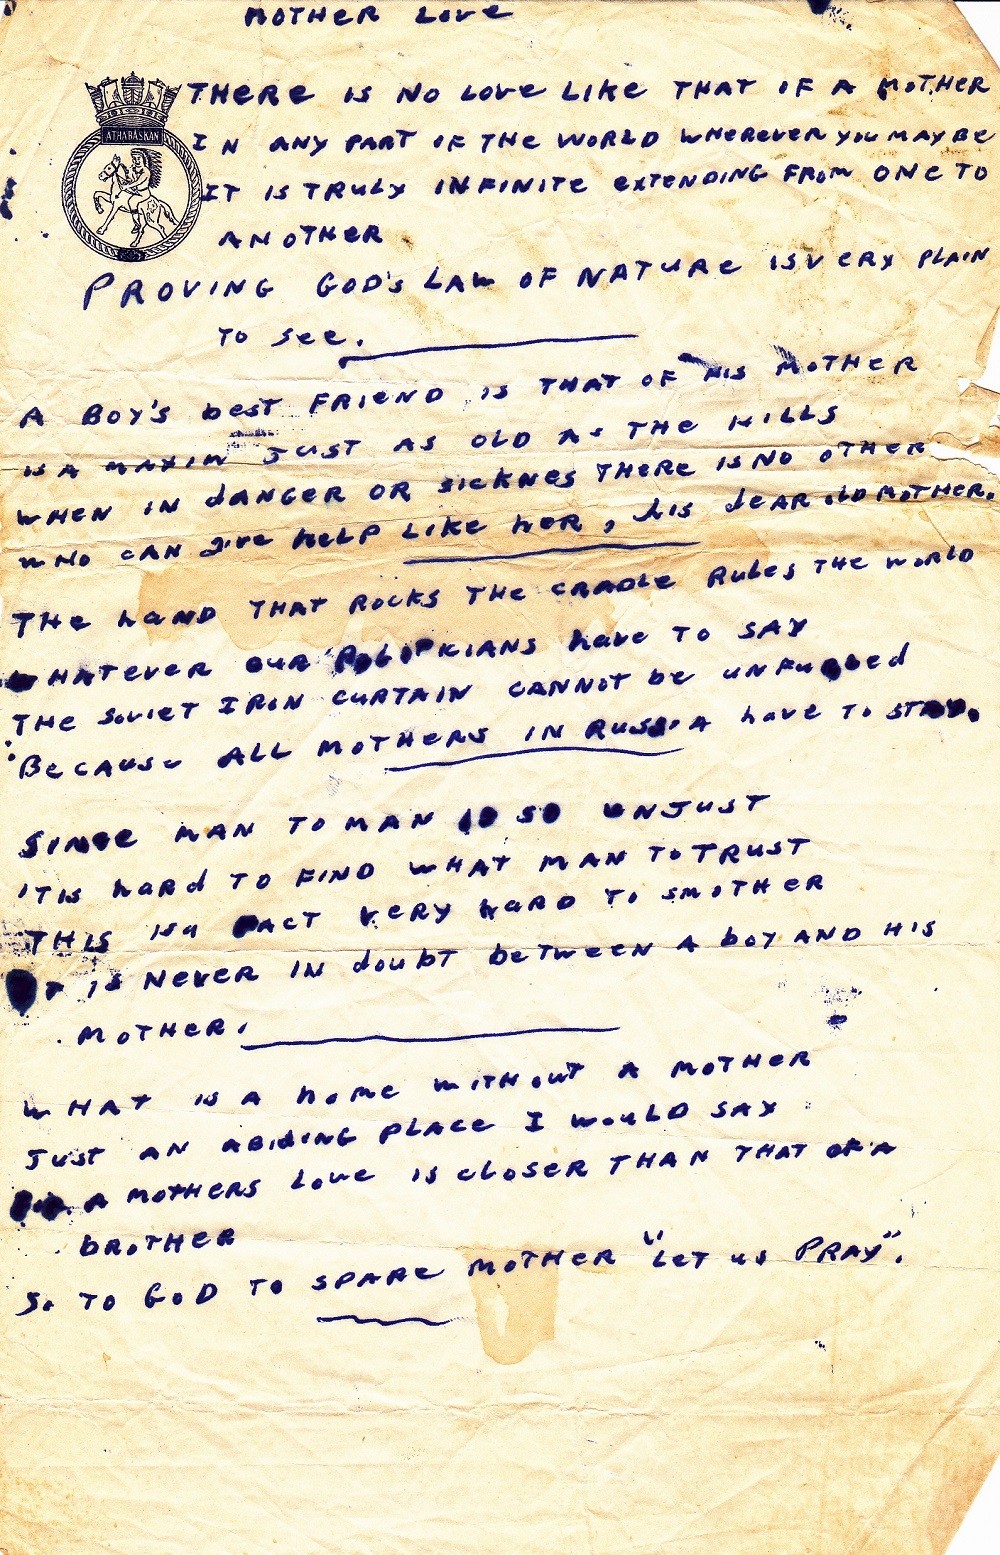 MOTHER LOVE
ATHABASKAN
THERE IS NO LOVE LIKE THAT OF A MOTHER
IN ANY PART OF THE WORLD WHEREVER YOU MAY BE
IT IS TRULY INFINITE EXTENDING FROM ONE TO
ANOTHER
PROVING GOD'S LAW OF NATURE IS VERY PLAIN
TO SEE.
A BOY'S BEST FRIEND IS THAT OF HIS MOTHER
IS A MAXIM JUST AS OLD AS THE HILLS
WHEN IN DANGER OR SICKNES THERE IS NO OTHER
WHO CAN GIVE HELP LIKE HER, HIS DEAR OLD MOTHER.
THE HAND THAT ROCKS THE CRADLE RULES THE WORLD
WHATEVER OUR HAVE TO SAY
THE SOVIET IRON CURTAIN CANNOT BE UNFURLED
BECAUSE ALL MOTHERS IN RUSSIA HAVE TO STAY.
SINCE MAN TO MAN IS SO UNJUST
IT IS HARD TO FIND WHAT MAN TO TRUST
THIS IS A FACT VERY HARD TO SMOTHER
IT IS NEVER IN DOUBT BETWEEN A BOY AND HIS
MOTHER.
WHAT IS A HOME WITHOUT A MOTHER
JUST AN ABIDING PLACE I WOULD SAY
A MOTHERS LOVE IS CLOSER THAN THAT OF A
BROTHER
SO TO GOD TO SPARE MOTHER "LET US PRAY".